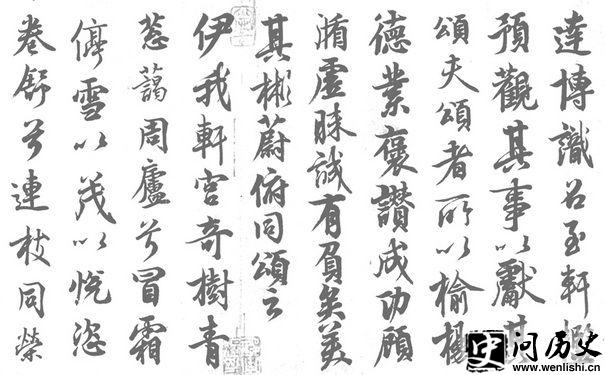 達博識召至軒檻
預觀其事以獻其
頌夫頌者所以揄揚
德業褒讚成功顧
循虛昧誠有負矣美
其彬蔚俯同頌云
伊我軒宮奇樹青
蔥藹周廬兮冒霜
停雪以茂以悅恣
卷舒兮連枝同榮
史问历史
www.wenlishi.cn